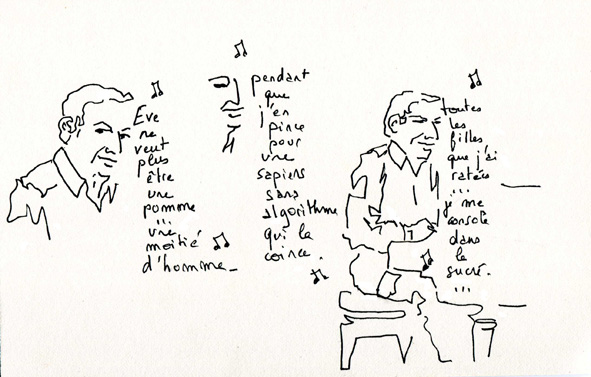 Eve
ne
veut
plus
être
une
pomme
...
une
moitié
d'homme_
pendant
que
j'en
pince
pour
une
sapiens
sans
algorithme
qui la
coince.
toutes
les
filles
que j'ai
ratées
...
je me
console
dans
le
sucré.
...